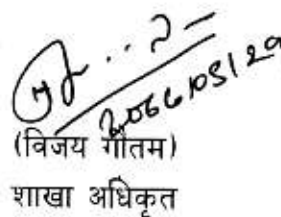 2066/05/29
(विजय गौतम)
शाखा अधिकृत